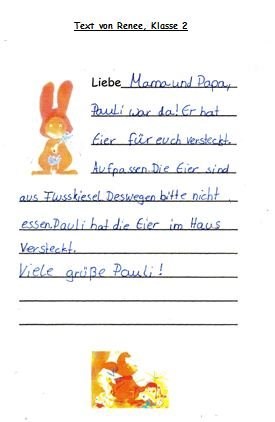 Text von Renee, Klasse 2
Liebe Mama und Papa,
Pauli war da! Er hat
Eier für euch versteckt.
Aufpassen. Die Eier sind
aus Flusskiesel. Deswegen bitte nicht
essen. Pauli hat die Eier im Haus
versteckt.
Viele grüße Pauli!